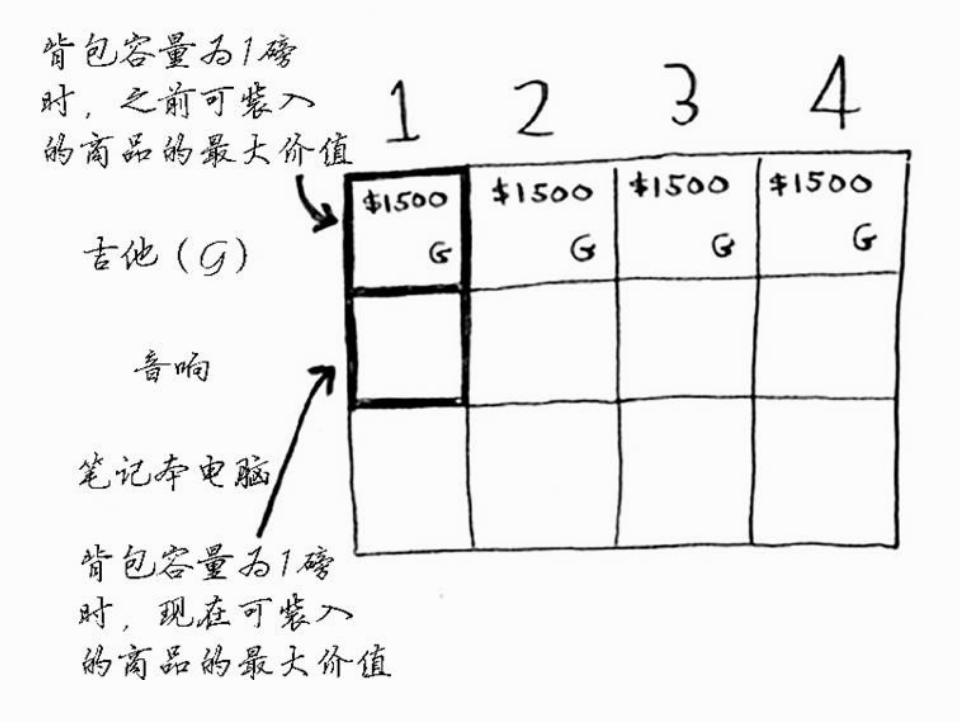 背包容量为1磅
时，之前可装入
的商品的最大价值
1 2 3 4
吉他（G） $1500 G $1500 G $1500 G $1500 G
音响
笔记本电脑
背包容量为1磅
时，现在可装入
的商品的最大价值